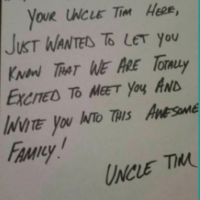 YOUR UNCLE TIM HERE,
JUST WANTED TO LET YOU
KNOW THAT WE ARE TOTALLY
EXCITED TO MEET YOU, AND
INVITE YOU INTO THIS AWESOME
FAMILY!
UNCLE TIM